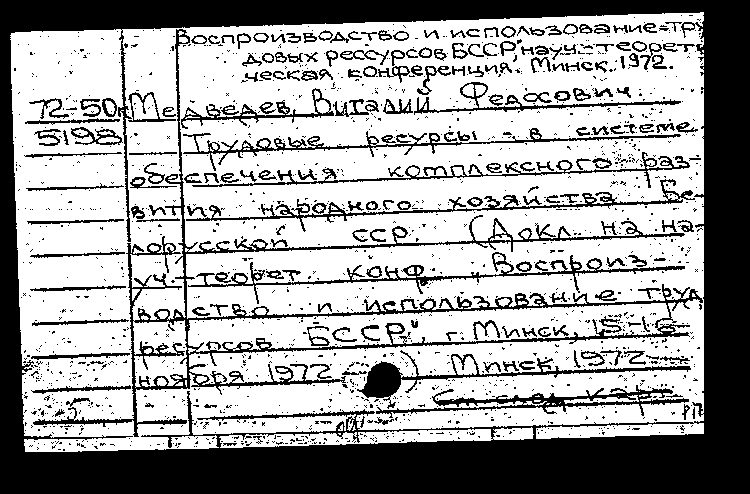 Воспроизводство и использование тру
довых рессурсов БССР, науч.-теорети
ческая конференция. Минск. 1972.
72-50к Медведев, Виталий Федосович.
5198 Трудовые ресурсы в системе
обеспечения комплексного раз-
вития народного хозяйства Бе-
лорусской ССР. (Докл. на на-
уч.-теорет. конф. "Воспроиз-
водство и использование труд.
ресурсов БССР", г. Минск, 15-16
ноября 1972). Минск, 1972.
См. след. карт.